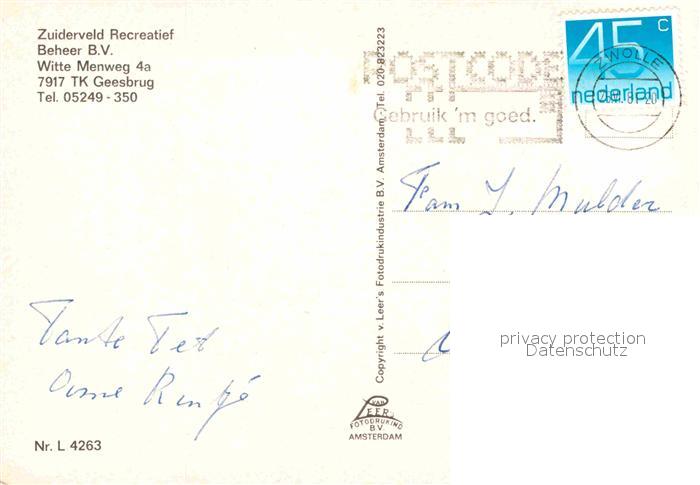 Zuiderveld Recreatief
Beheer B.V.
Witte Menweg 4a
7917 TK Geesbrug
Tel. 05249 - 350
45 C
nederland
ZWOLLE
POSTCODE
Gebruik 'm goed.
Fam J. Mulder
privacy protection
Datenschutz
Copyright v. Leer's Fotodrukindustrie B.V. Amsterdam, Tel. 020-823223
Tante Tet
Ome
VAN
LEER'S
FOTODRUKIND
B.V.
AMSTERDAM
Nr. L 4263